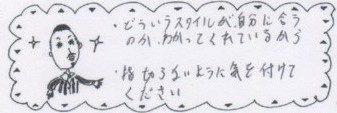 ・どういうスタイルが自分に合う
のか、わかってくれているから
・指切らないように気を付けて
ください